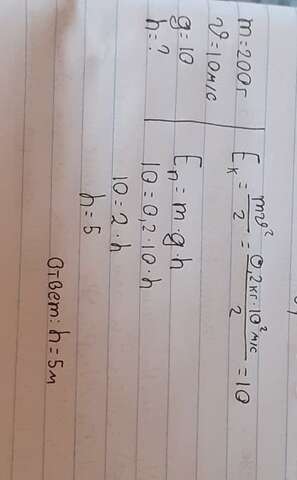 m=200г
υ=10м/с
g=10
h=?
Eк = mυ²/2 = 0,2кг·10² м/с / 2 = 10
Eп = m·g·h
10 = 0,2·10·h
10 = 2·h
h = 5
Ответ: h = 5м